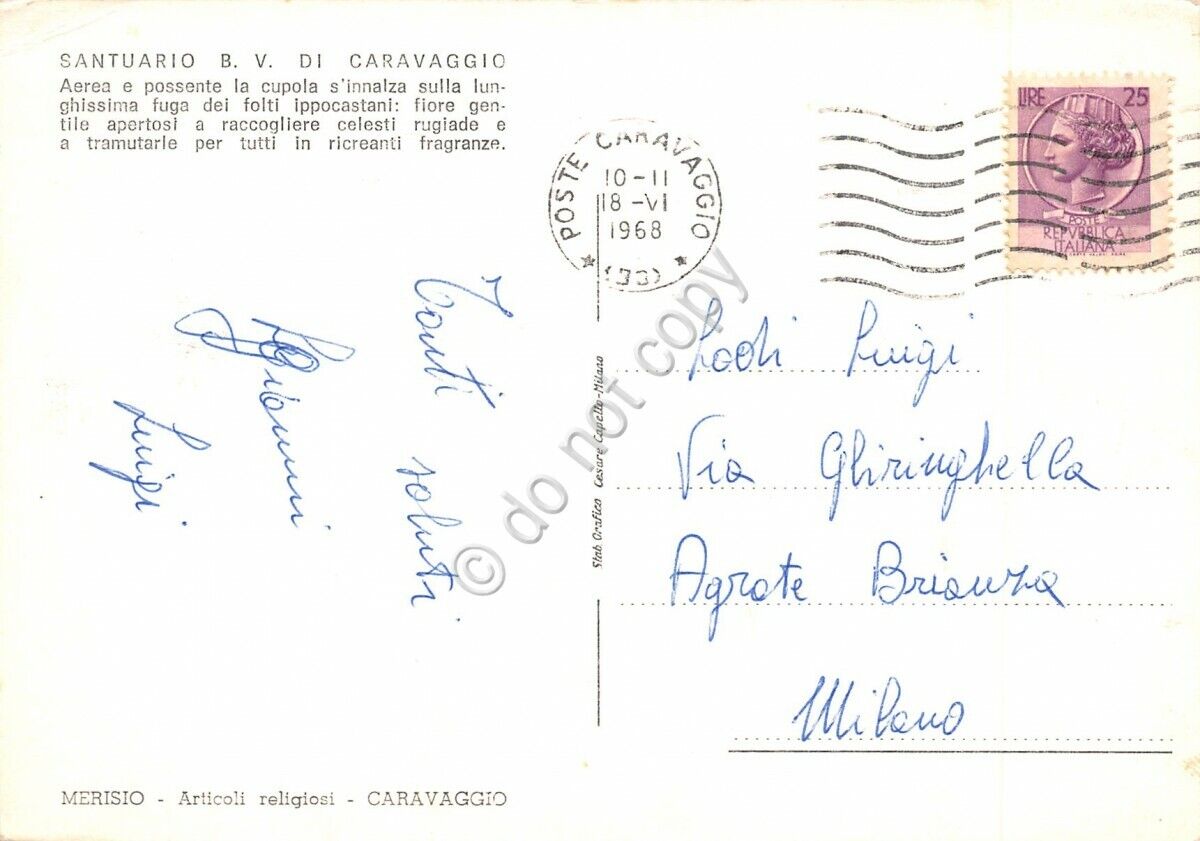 SANTUARIO B. V. DI CARAVAGGIO
Aerea e possente la cupola s'innalza sulla lun-
ghissima fuga dei folti ippocastani: fiore gen-
tile apertosi a raccogliere celesti rugiade e
a tramutarle per tutti in ricreanti fragranze.
POSTE CARAVAGGIO
10-11
18-VI
1968
LIRE 25
POSTE
REPVBBLICA
ITALIANA
Tanti
saluti
Gianni
Luigi
Stab. Grafico Cesare Capello-Milano
Lodi Luigi
Via Ghiringhella
Agrate Brianza
Milano
MERISIO - Articoli religiosi - CARAVAGGIO
© do not copy